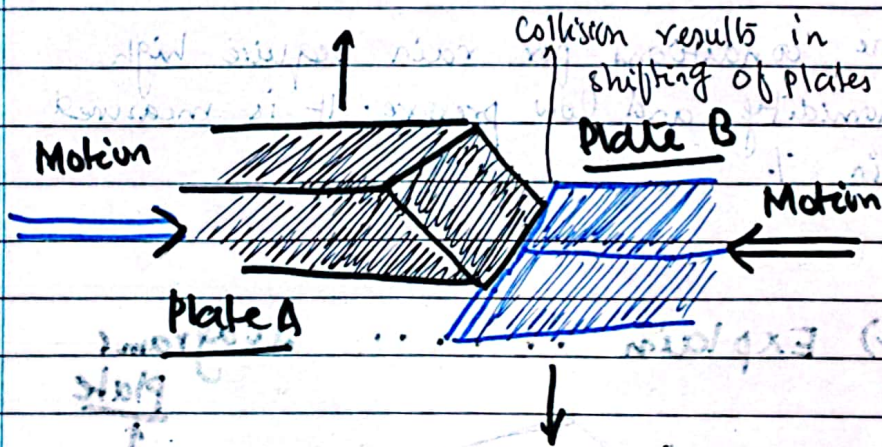 Collision results in
shifting of plates
Plate B
Motion
Motion
Plate A